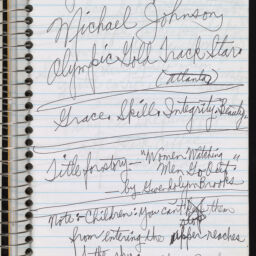 Michael Johnson,
Olympic Gold Track Star.
(Atlanta)
Grace. Skill. Integrity. Beauty.
Title for story — "Women Watching
Men Go Past,"
— by Gwendolyn Brooks
Note: Children: You can't stop them
from entering the upper reaches
of the